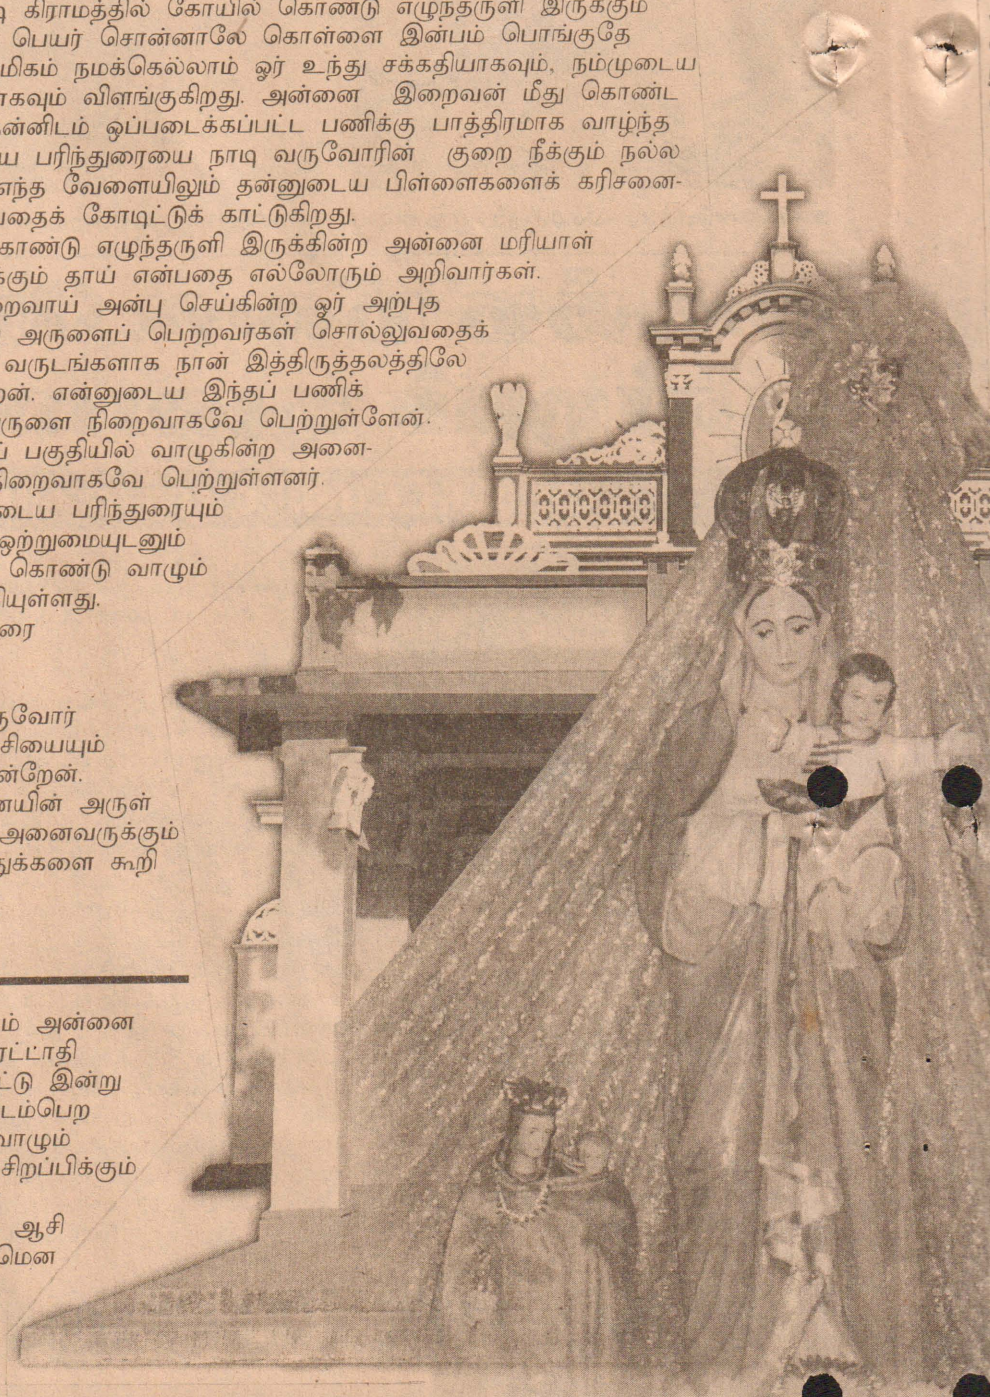 கிராமத்தில் கோயில் கொண்டு எழுந்தருளி இருக்கும்
பெயர் சொன்னாலே கொள்ளை இன்பம் பொங்குதே
மிகம் நமக்கெல்லாம் ஓர் உந்து சக்கதியாகவும், நம்முடைய
ாகவும் விளங்குகிறது. அன்னை இறைவன் மீது கொண்ட
தன்னிடம் ஒப்படைக்கப்பட்ட பணிக்கு பாத்திரமாக வாழ்ந்த
ய பரிந்துரையை நாடி வருவோரின் குறை நீக்கும் நல்ல
எந்த வேளையிலும் தன்னுடைய பிள்ளைகளைக் கரிசனை-
பதைக் கோடிட்டுக் காட்டுகிறது.
கொண்டு எழுந்தருளி இருக்கின்ற அன்னை மரியாள்
க்கும் தாய் என்பதை எல்லோரும் அறிவார்கள்.
றைவாய் அன்பு செய்கின்ற ஓர் அற்புத
அருளைப் பெற்றவர்கள் சொல்லுவதைக்
வருடங்களாக நான் இத்திருத்தலத்திலே
றன். என்னுடைய இந்தப் பணிக்
ருளை நிறைவாகவே பெற்றுள்ளேன்.
ப் பகுதியில் வாழுகின்ற அனை-
நிறைவாகவே பெற்றுள்ளனர்.
டைய பரிந்துரையும்
ஒற்றுமையுடனும்
கொண்டு வாழும்
ியுள்ளது.
ரை
ருவோர்
சியையும்
ன்றேன்.
னையின் அருள்
அனைவருக்கும்
துக்களை கூறி
ம் அன்னை
ரட்டாதி
ட்டு இன்று
டம்பெற
வாழும்
சிறப்பிக்கும்
ஆசி
மென